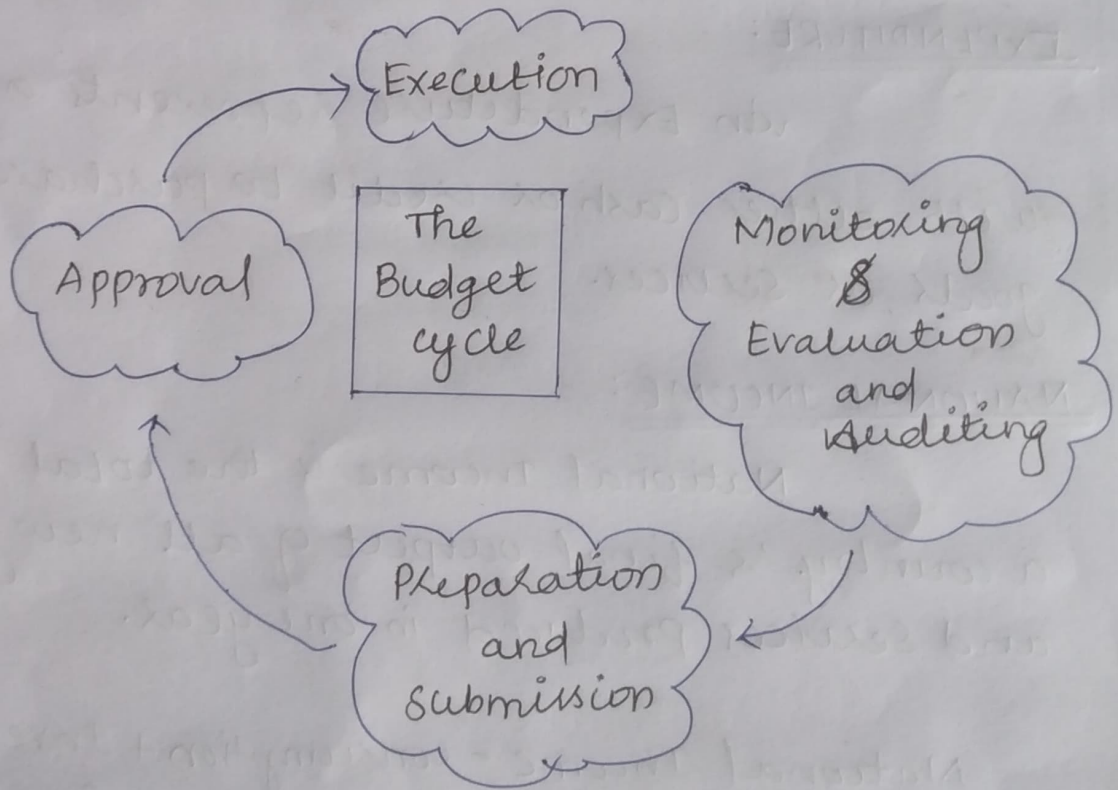 Execution
The
Budget
cycle
Approval
Monitoring
&
Evaluation
and
Auditing
Preparation
and
Submission